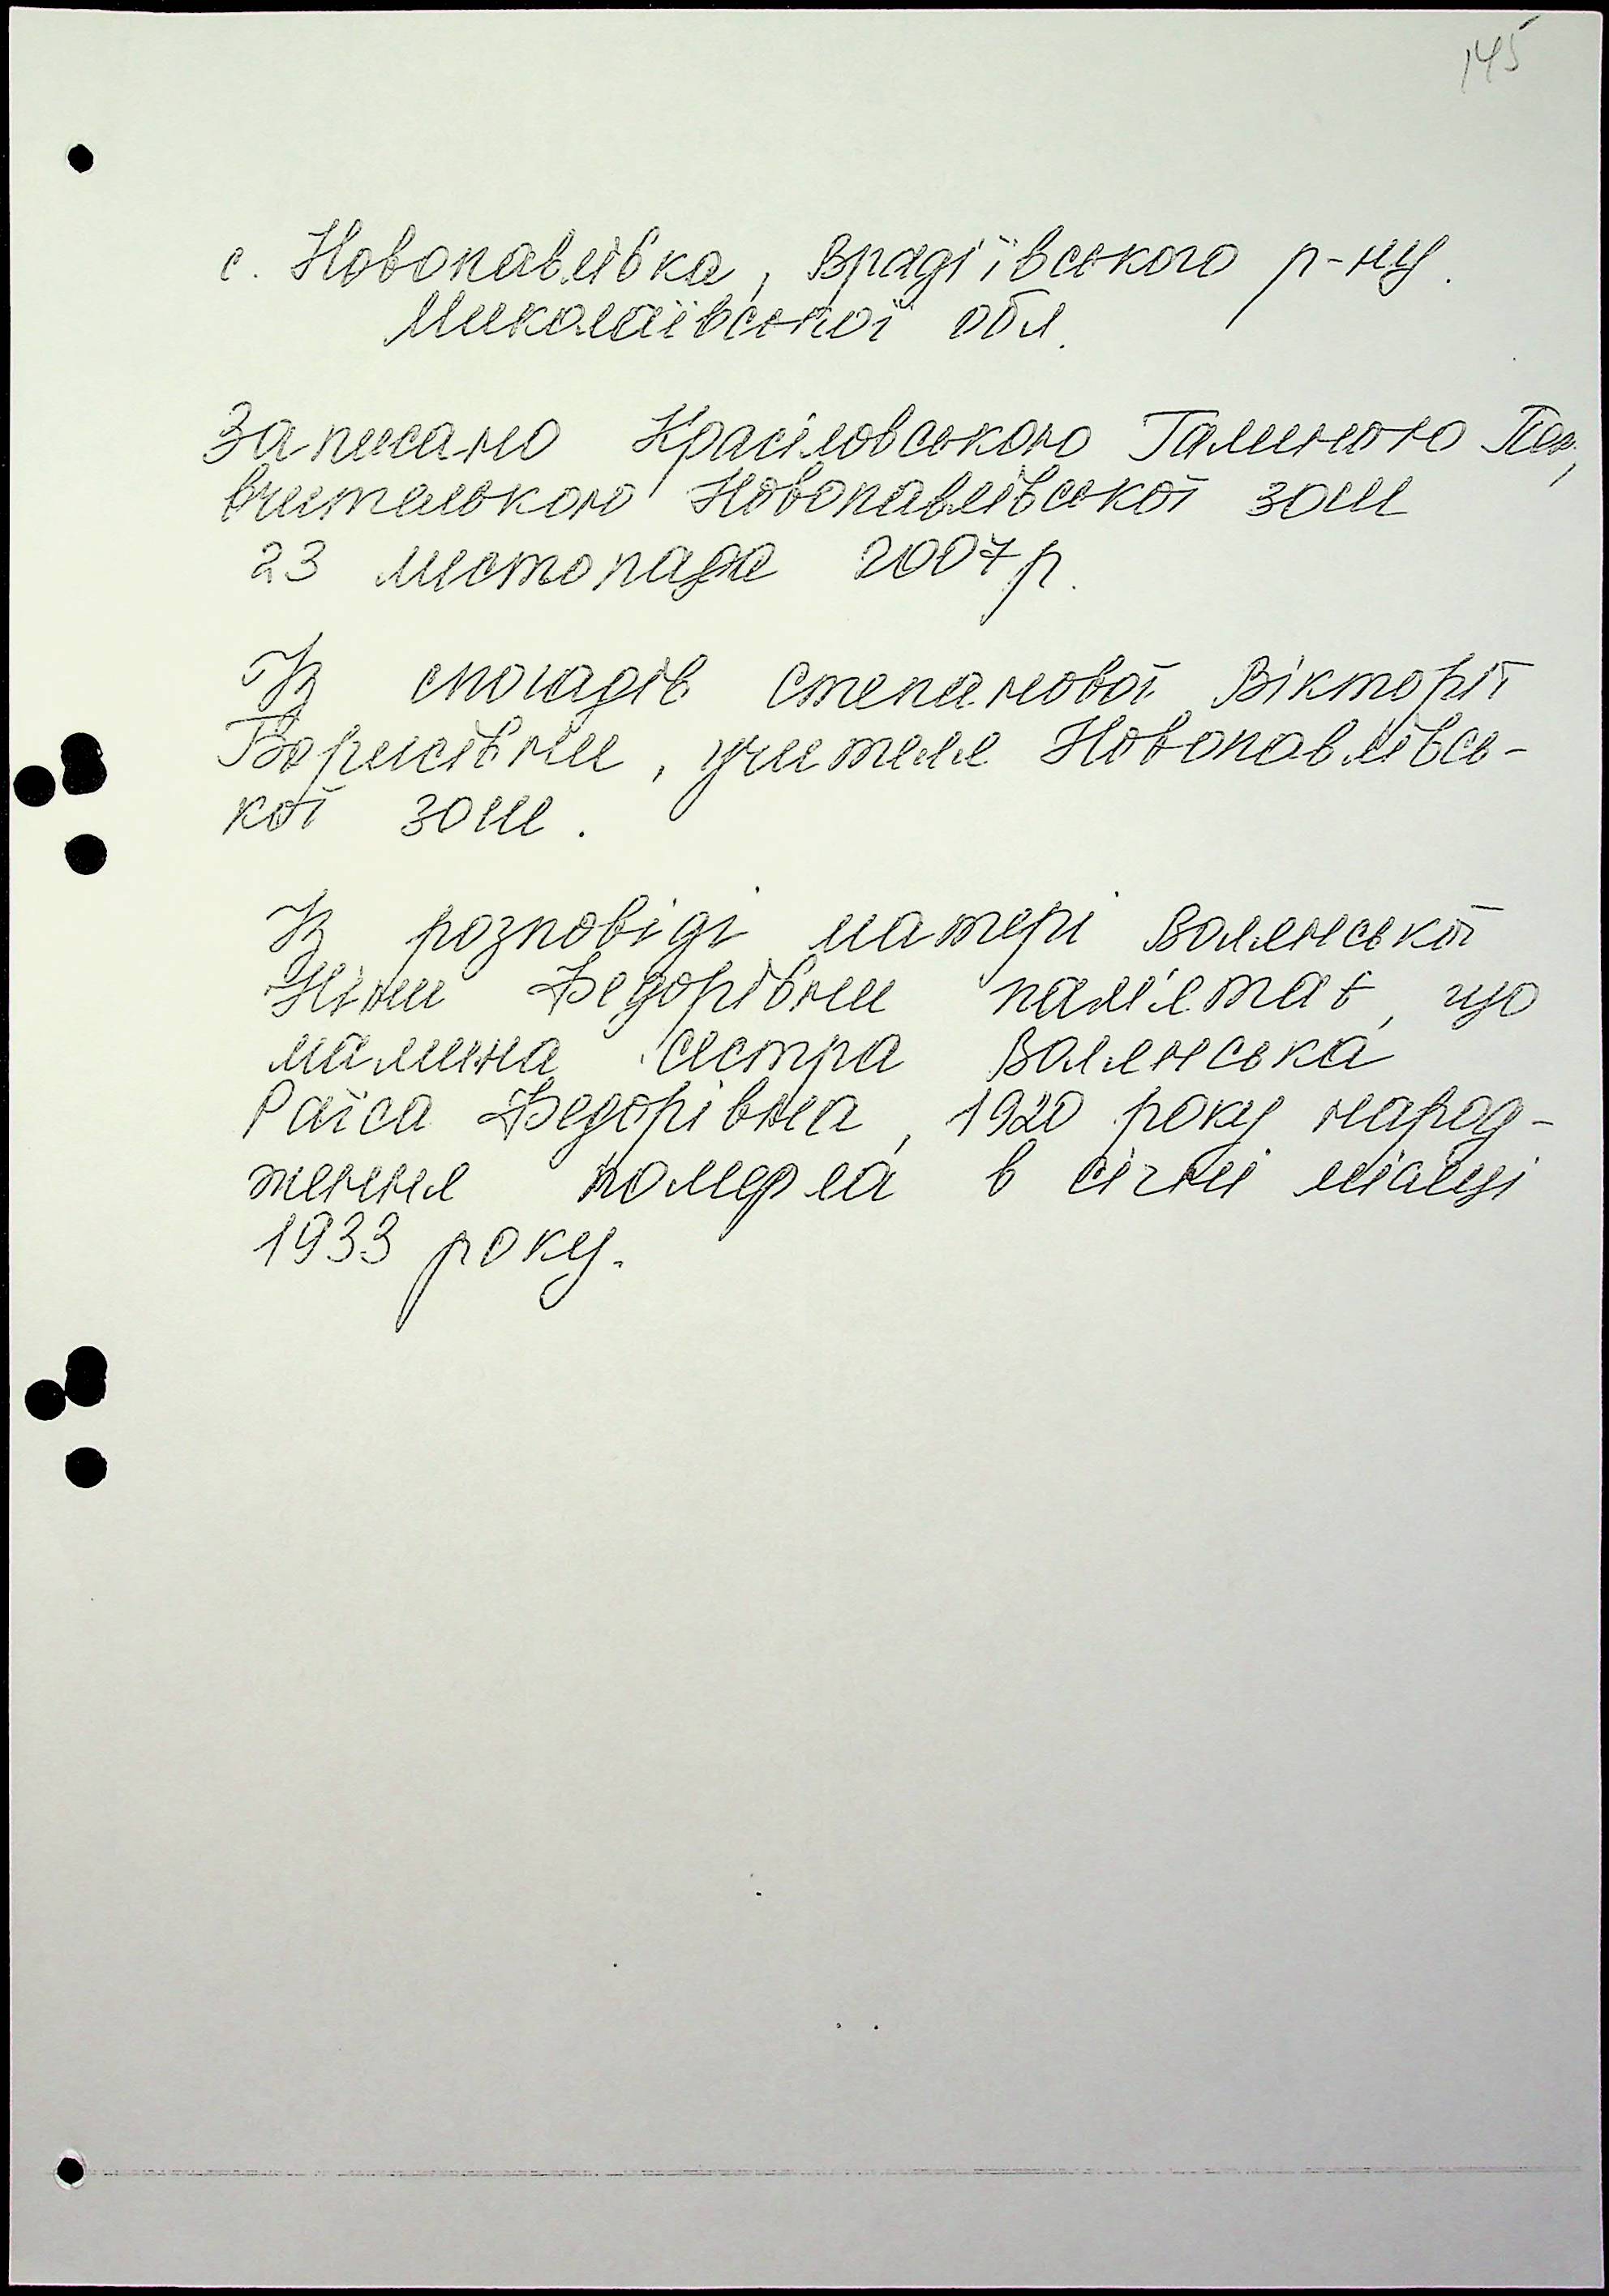 145
с. Новопавлівка, Врадіївського р-ну.
Миколаївської обл.
Записано Красіловською Галиною
вчителькою Новопавлівської зош
23 листопада 2007 р.
Із спогадів Степанової Вікторії
Борисівни, учителя Новопавлівсь-
кої зош.
Із розповіді матері Волянської
Ніни Федорівни пам'ятає, що
мамина сестра Волянська
Раїса Федорівна, 1920 року народ-
ження померла в січні місяці
1933 року.